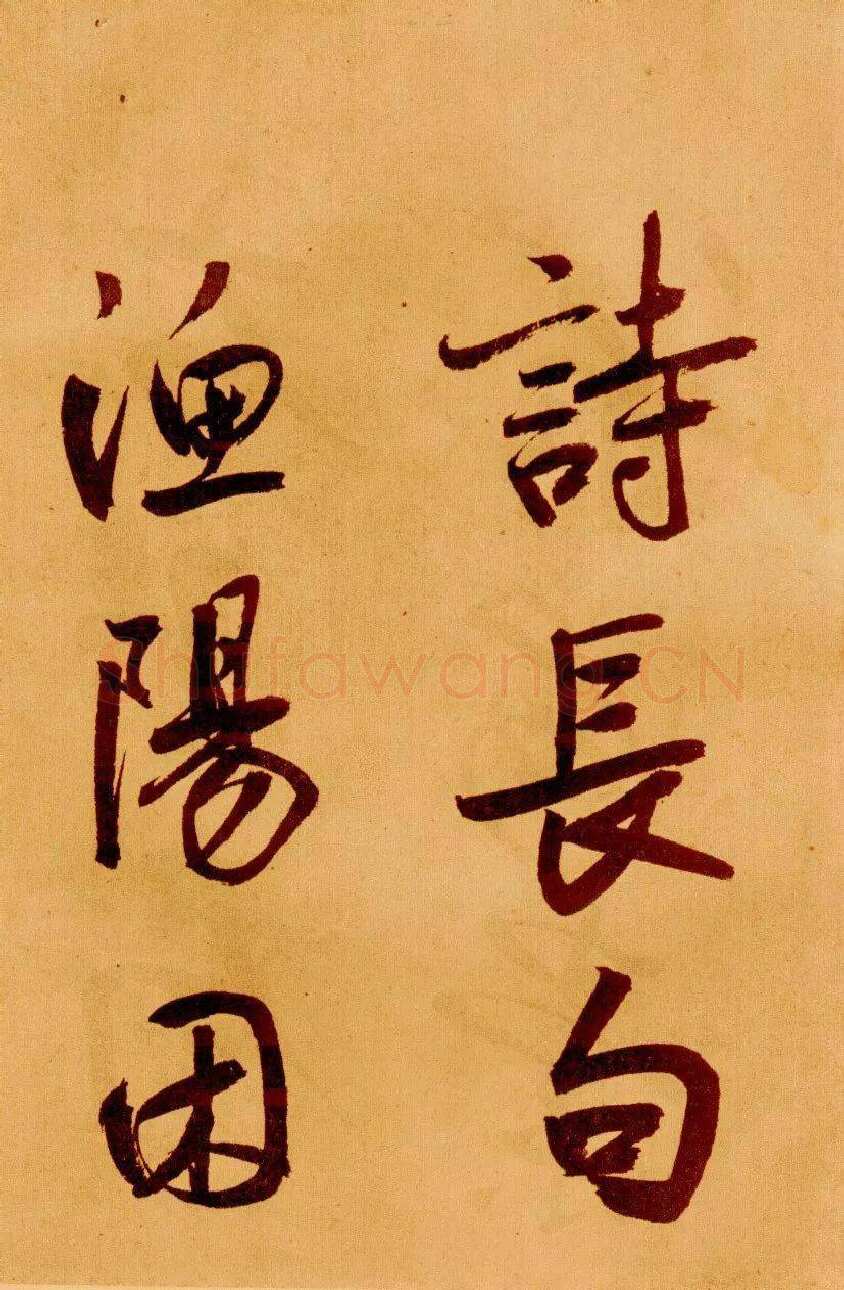 詩長句
漁陽困
Shufawang.CN